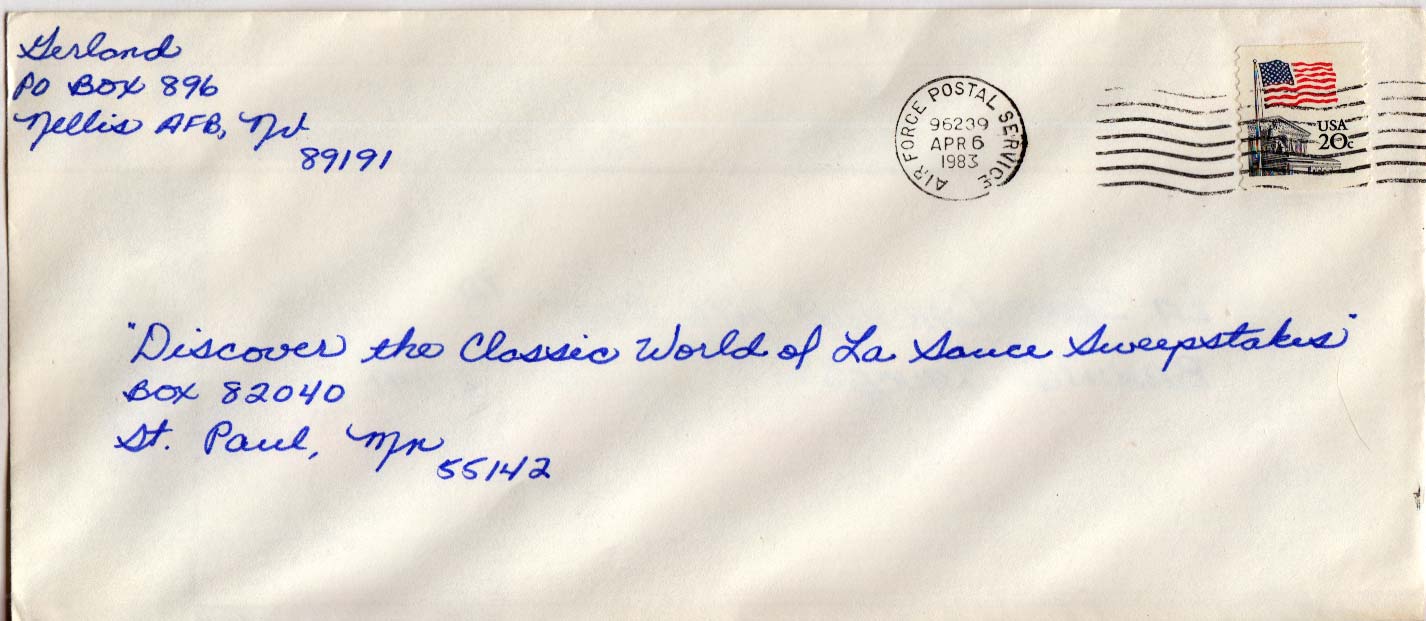 Gerland
PO BOX 896
Nellis AFB, Nv
89191
AIR FORCE POSTAL SERVICE
96239
APR 6
1983
USA
20c
"Discover the Classic World of La Sauce Sweepstakes"
BOX 82040
St. Paul, Mn
55142